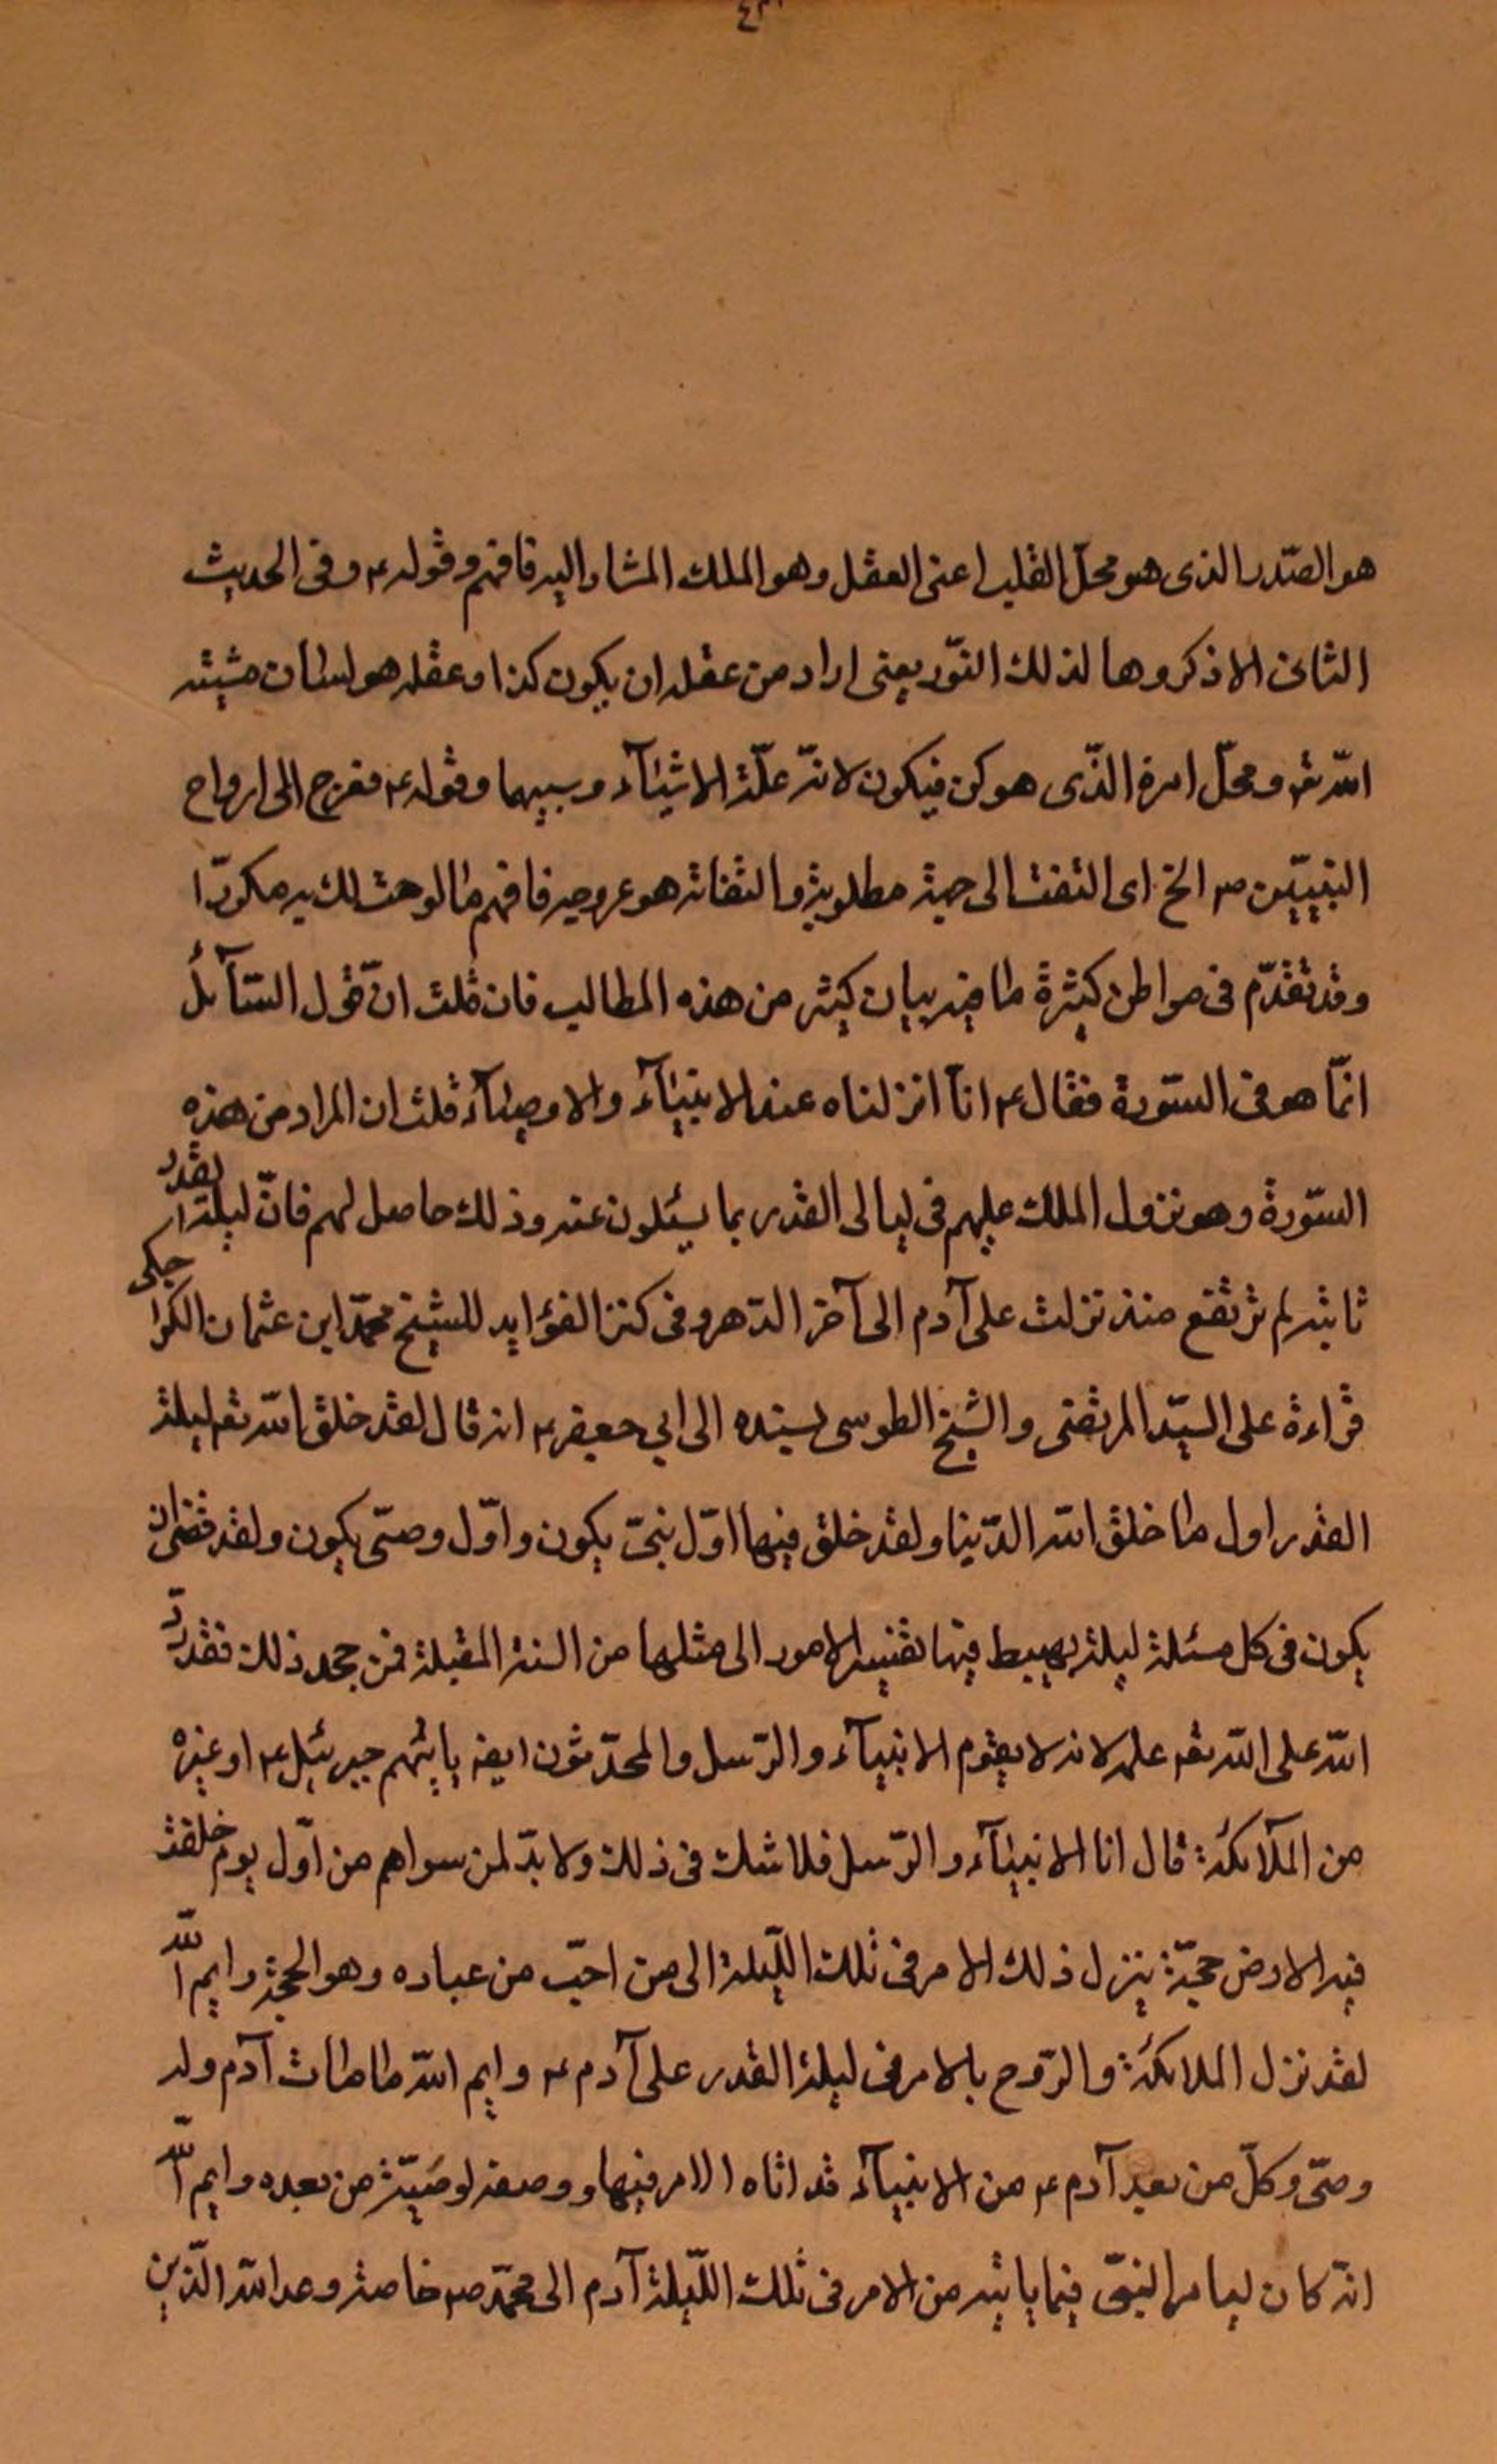 هو الصّدر الذى هو محلّ القلب اعنى العقل وهو الملك المشار اليه فافهم وقوله ع وفى الحديث
الثانى الا ذكروها لذلك النّور يعنى اراد من عقله ان يكون كذا وعقله هو لسان مشيّته
اللّه تع ومحلّ امره الذّى هو كن فيكون لانّه علّة الاشيآء وسببها وقوله ع فعرج الى ارواح
النبييّن ص الخ اى التفت الى جهة مطلوبة والتفاته هو عروجه فافهم ما لوحت لك به مكررّا
وقد تقدّم فى مواطن كثيرة ما فيه بيان كثير من هذه المطالب فان قلت انّ قول السّآئل
انمّا هو فى السّورة فقال ع انآ انزلناه عند الانبيآء والاوصيآء قلت ان المراد من هذه
السّورة وهو نزول الملك عليهم فى ليالى القدر بما يسئلون عنه وذلك حاصل لهم فانّ ليلة القدر
ثابته لم ترتفع منذ نزلت على آدم الى آخر الدّهر وفى كنز الفوٰايد للشيخ محمّد ابن عثمان الكراجكى
قراءة على السيّد المرتضى والشيخ الطوسى بسنده الى ابي جعفر ع انه قال لقد خلق اللّه تع ليلة
القدر اول ما خلق اللّه الدّنيا ولقد خلق فيها اوّل نبىّ يكون واوّل وصىّ يكون ولقد قضى ان
يكون فى كل مسئلة ليلة يهبط فيها تفسير الامور الى مثلها من السنة المقبلة فمن جحد ذلك فقد ردّ
اللّه على اللّه تع علمه لانه لا يقوم الانبيآء والرّسل والمحدّثون ايضا ياتيهم جبرئيل ع او غيره
من الملآئكة قال انا الانبيآء والرّسل فلا شك فى ذلك ولا بدّ لمن سواهم من اوّل يوم خلقت
فيه الارض حجّة ينزل ذلك الامر فى تلك اللّيلة الى من احبّ من عباده وهو الحجّة وايم اللّه
لقد نزل الملائكة والرّوح بالامر فى ليلة القدر على آدم ع وايم اللّه ما مات آدم وله
وصىّ وكلّ من بعد آدم ع من الانبيآء قد اتاه الامر فيها ووصفه لوصيّه من بعده وايم اللّه
انّه كان ليامر النبّى فيما ياتيه من الامر فى تلك اللّيلة آدم الى محمّد ص خاصة وعد اللّه الّذين